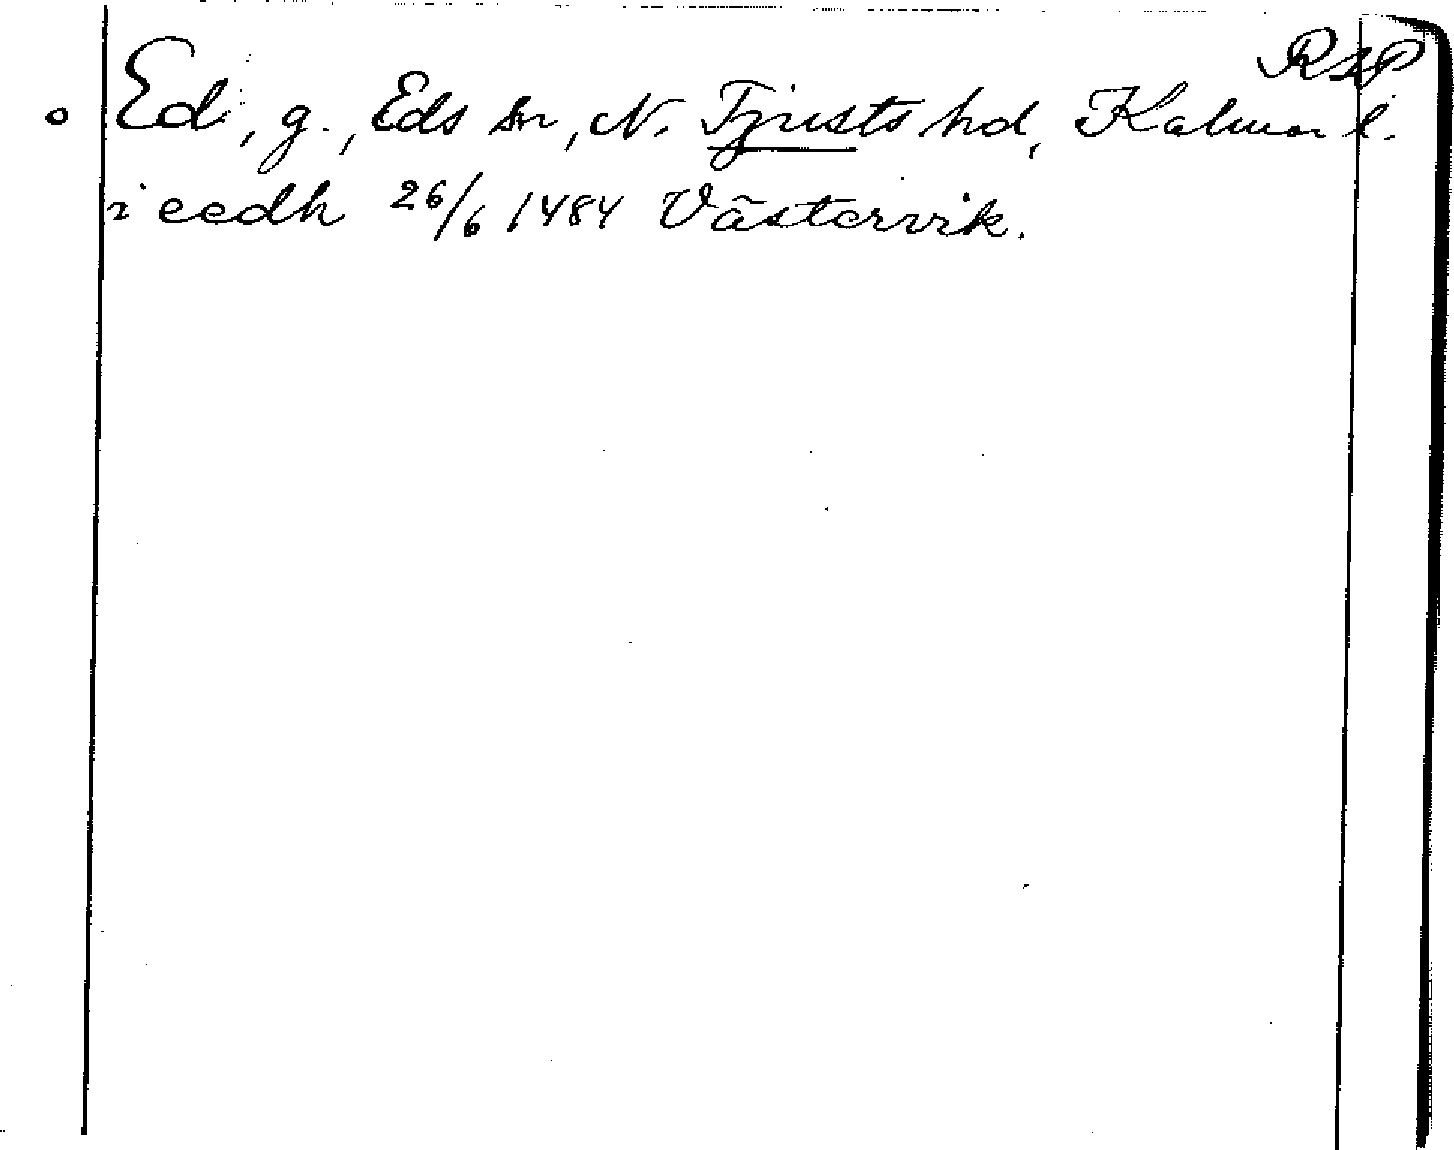 RzP
Ed, g., Eds sn, N. Tjusts hd, Kalmar l.
i eedh 26/6 1484 Västervik.